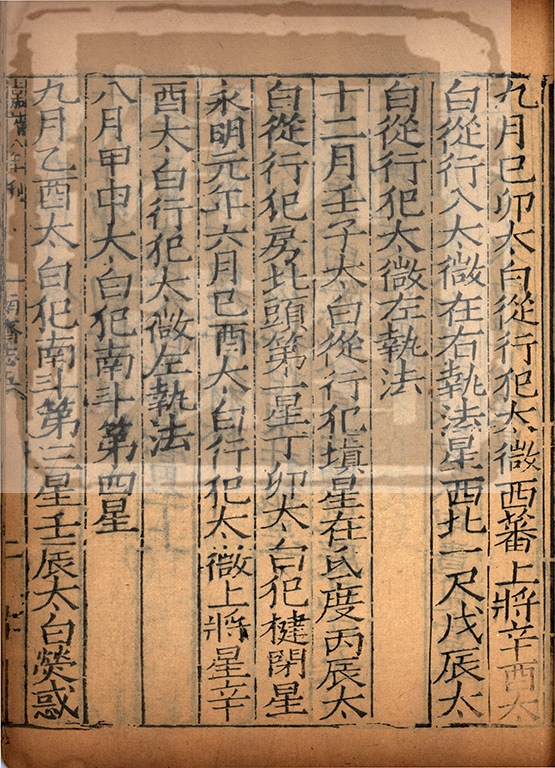 九月己卯太白從行犯太微西蕃上將辛酉太
白從行入太微在右執法星西北一尺戊辰太
白從行犯太微左執法
十二月壬子太白從行犯塡星在氐度丙辰太
白從行犯房北頭第一星丁卯太白犯楗閉星
永明元年六月己酉太白行犯太微上將星辛
酉太白行犯太微左執法
八月甲申太白犯南斗第四星
九月乙酉太白犯南斗第三星壬辰太白熒惑